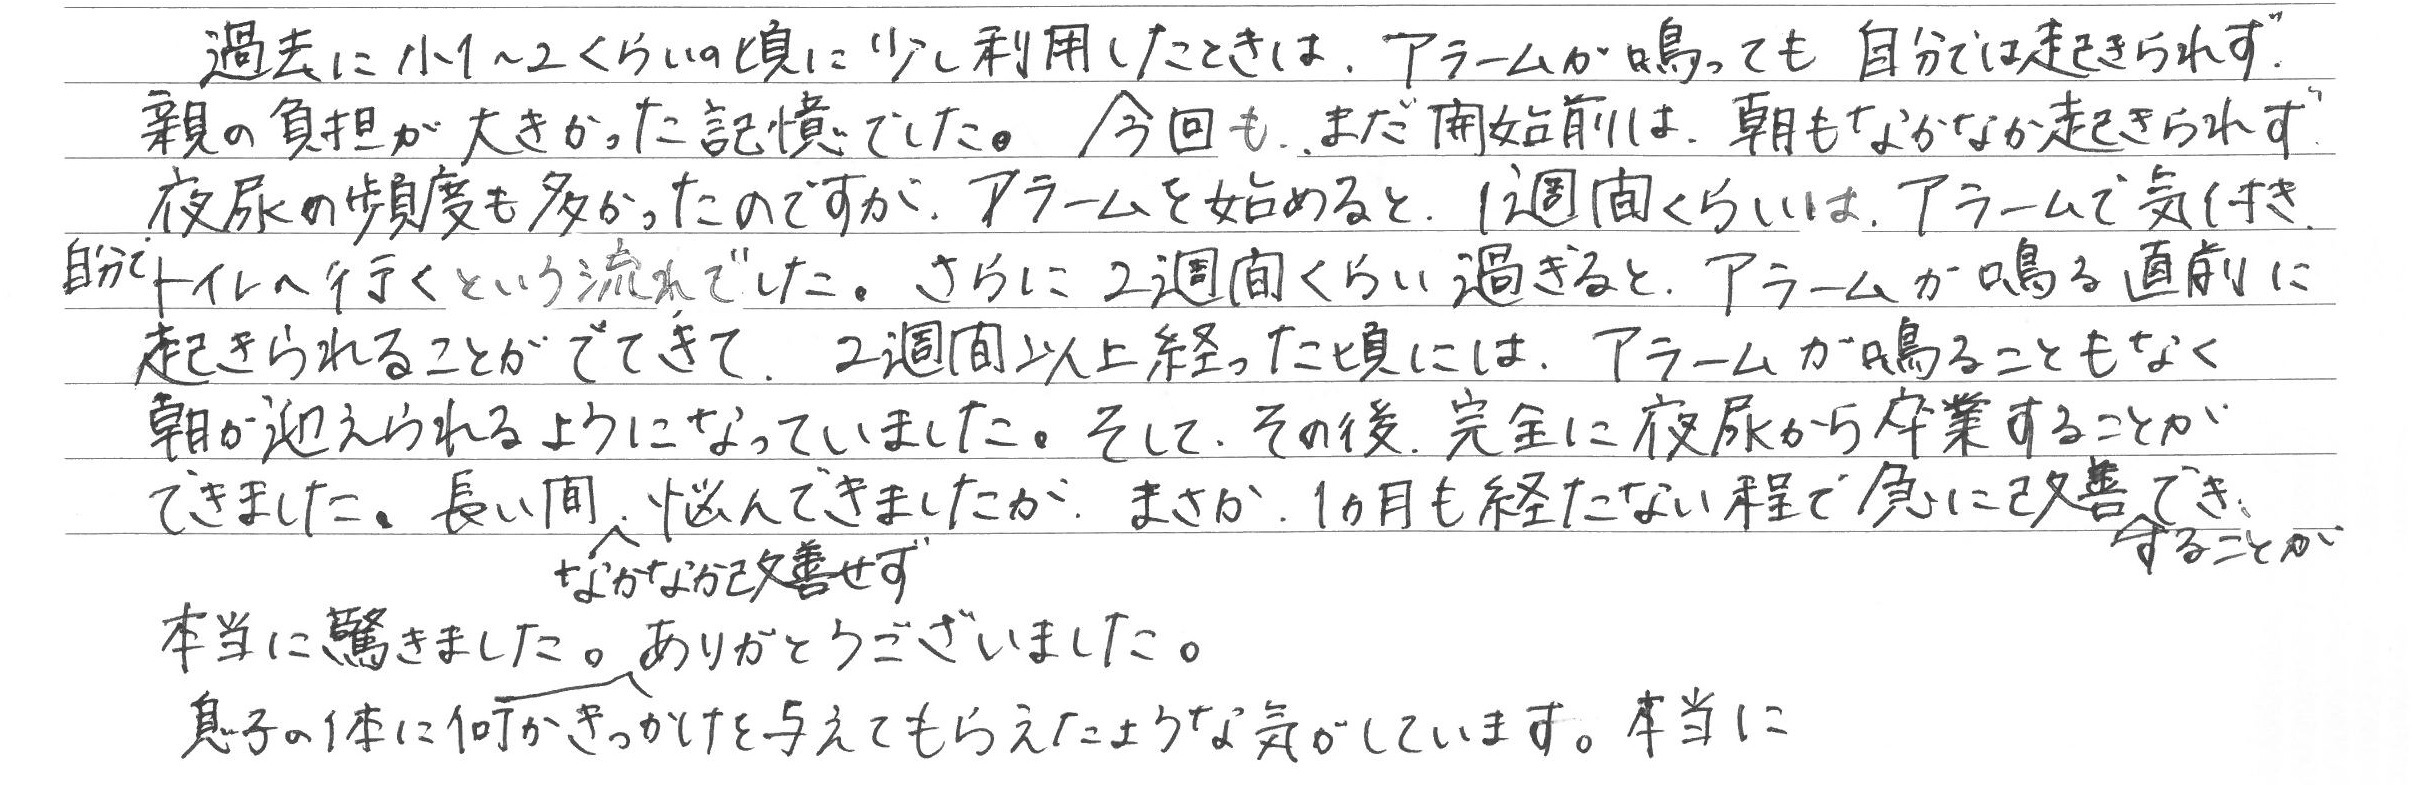 過去に小1～2くらいの頃に少し利用したときは、アラームが鳴っても自分では起きられず、
親の負担が大きかった記憶でした。今回も、まだ開始前は、朝もなかなか起きられず、
夜尿の頻度も多かったのですが、アラームを始めると、1週間くらいは、アラームで気付き、
自分でトイレへ行くという流れでした。さらに2週間くらい過ぎると、アラームが鳴る直前に
起きられることがでてきて、2週間以上経った頃には、アラームが鳴ることもなく
朝が迎えられるようになっていました。そして、その後、完全に夜尿から卒業することが
できました。長い間、悩んできましたが、まさか、1カ月も経たない程で急に改善でき、
することが
なかなか改善せず
本当に驚きました。ありがとうございました。
息子の体に何かきっかけを与えてもらえたような気がしています。本当に